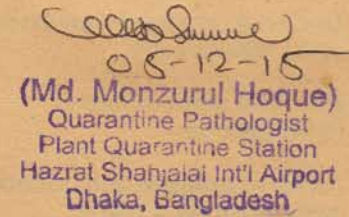 08-12-15
(Md. Monzurul Hoque)
Quarantine Pathologist
Plant Quarantine Station
Hazrat Shahjalal Int'l Airport
Dhaka, Bangladesh